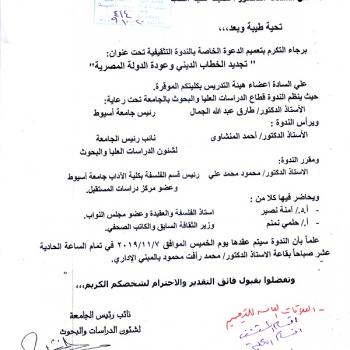 تحية طيبة وبعد,,,
برجاء التكرم بتعميم الدعوة الخاصة بالندوة التثقيفية تحت عنوان:
" تجديد الخطاب الديني وعودة الدولة المصرية"
علي السادة اعضاء هيئة التدريس بكليتكم الموقرة.
حيث ينظم الندوة قطاع الدراسات العليا والبحوث بالجامعة تحت رعاية:
الأستاذ الدكتور/ طارق عبد الله الجمال
رئيس جامعة أسيوط
ويرأس الندوة :
الأستاذ الدكتور/ أحمد المنشاوى
نائب رئيس الجامعة
لشئون الدراسات العليا والبحوث
ومقرر الندوة:
الأستاذ الدكتور/ محمود محمد علي
رئيس قسم الفلسفة بكلية الآداب جامعة أسيوط
وعضو مركز دراسات المستقبل.
ويحاضر فيها كلا من :
- أ.د/ آمنة نصير
أستاذ الفلسفة والعقيدة وعضو مجلس النواب.
- أ/ حلمي نمنم
وزير الثقافة السابق والكاتب الصحفي.
علماً بأن الندوة سيتم عقدها يوم الخميس الموافق ٢٠١٩/١١/٧ في تمام الساعة الحادية
عشر صباحاً بقاعة الأستاذ الدكتور/ محمد رأفت محمود بالمبني الإداري.
وتفضلوا بقبول فائق التقدير والاحترام لشخصكم الكريم,,,
نائب رئيس الجامعة
لشئون الدراسات العليا والبحوث